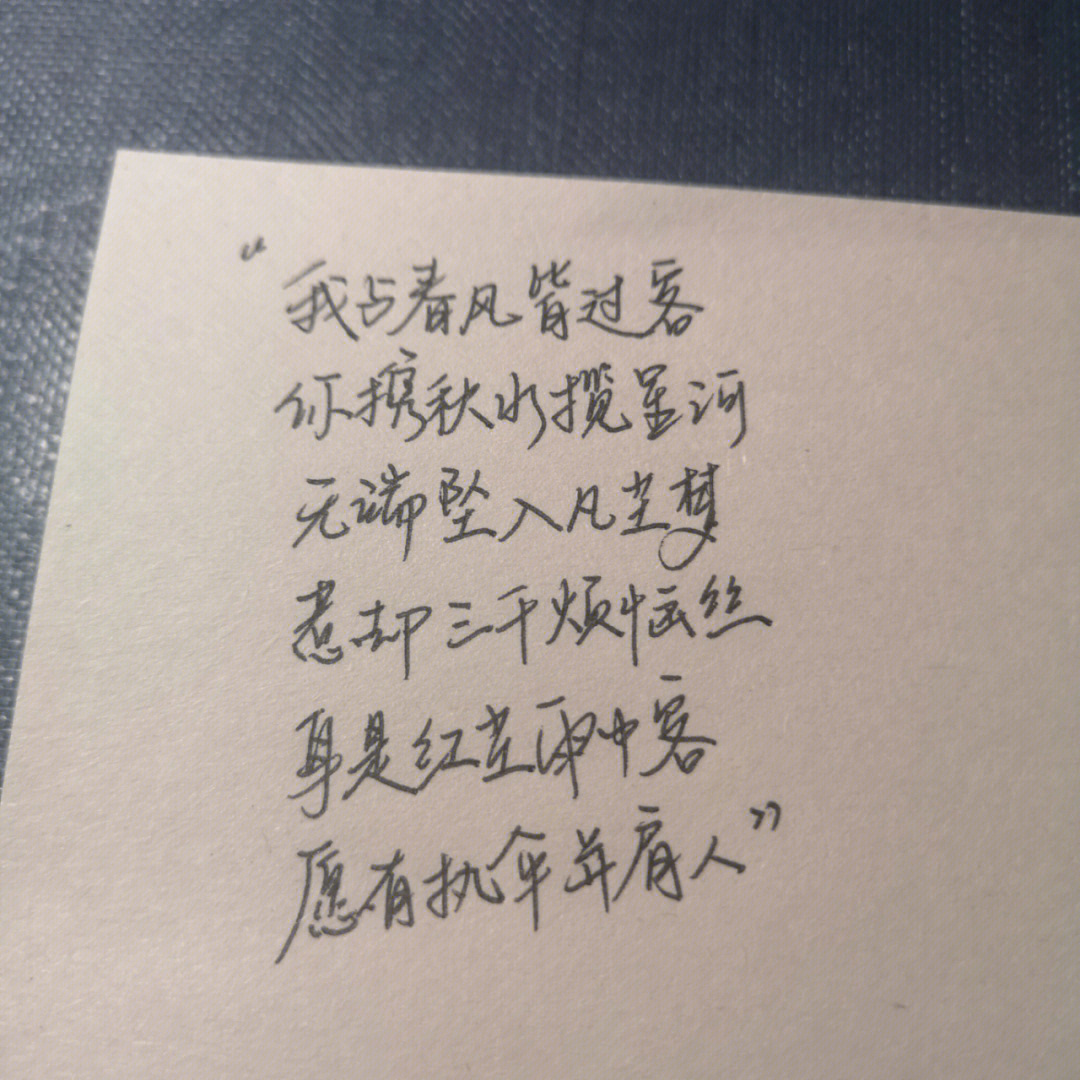 “我与春风皆过客
你携秋水揽星河
无端坠入凡尘梦
惹却三千烦恼丝
身是红尘雨中客
愿有执伞并肩人”